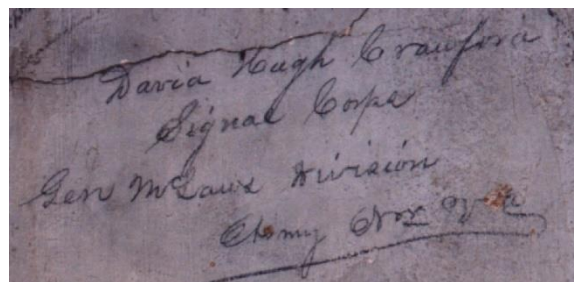 David Hugh Crawford
Signal Corps
Gen McLaws Division
Army Nor Va